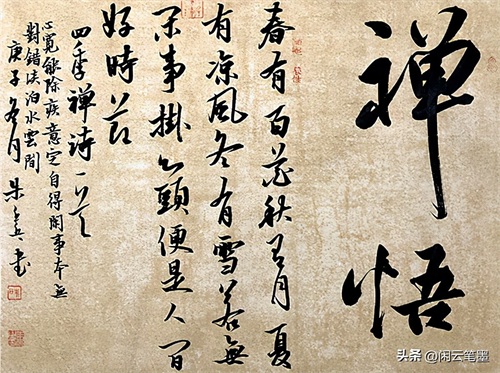 禅悟
春有百花秋有月夏
有凉风冬有雪若無
闲事掛心頭便是人间
好時节
四季禅诗一首
心寬能除疾意定自得闲事本無
對錯淡泊水雲間
庚子冬月朱书
头条 @闲云笔墨